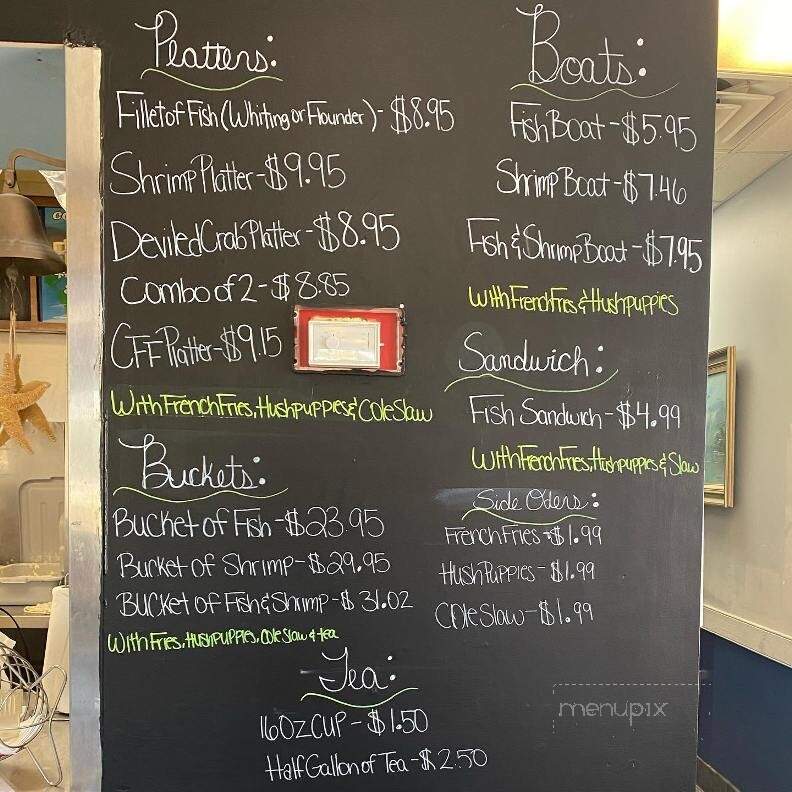 Platters:
Fillet of Fish (Whiting or Flounder) - $8.95
Shrimp Platter - $9.95
Deviled Crab Platter - $8.95
Combo of 2 - $8.85
CFF Platter - $9.15
With French Fries, Hushpuppies & Cole Slaw
Buckets:
Bucket of Fish - $23.95
Bucket of Shrimp - $29.95
Bucket of Fish & Shrimp - $31.02
With Fries, Hushpuppies, Cole Slaw & tea
Boats:
Fish Boat - $5.95
Shrimp Boat - $7.46
Fish & Shrimp Boat - $7.95
With French Fries & Hushpuppies
Sandwich:
Fish Sandwich - $4.99
With French Fries, Hushpuppies & Slaw
Side Oders:
French Fries - $1.99
Hush Puppies - $1.99
Cole Slaw - $1.99
Tea:
16oz Cup - $1.50
Half Gallon of Tea - $2.50
menupix